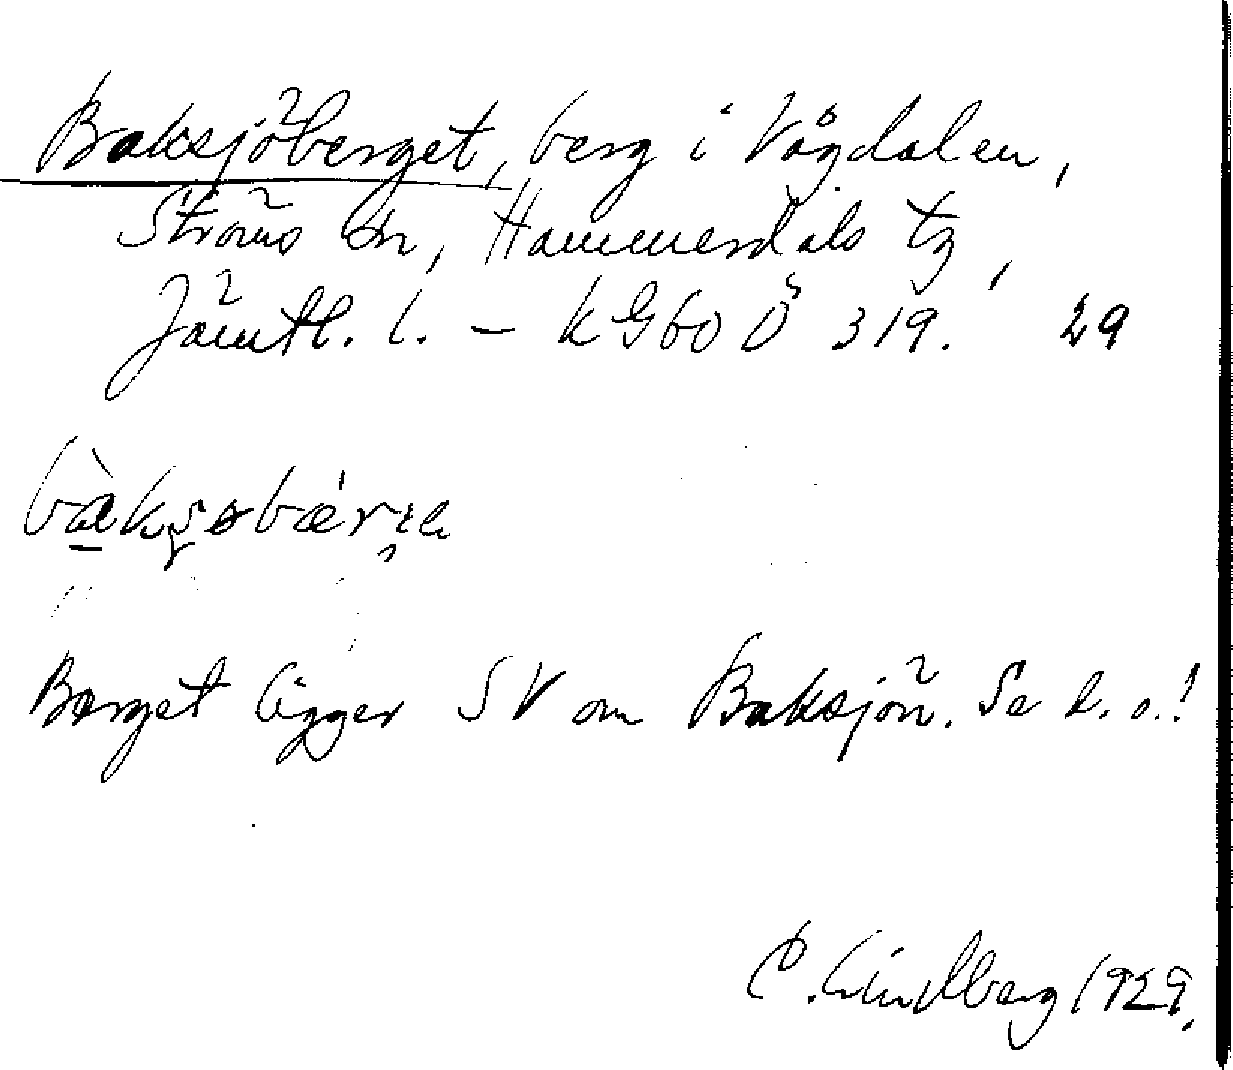 Baksjöberget, berg i Vågdalen,
Ströms sn, Hammerdals tg,
Jämtl. l. – k G60Ö 319. 29
Berget ligger SV om Baksjön. Se d. o.!
C. Lindberg 1929.